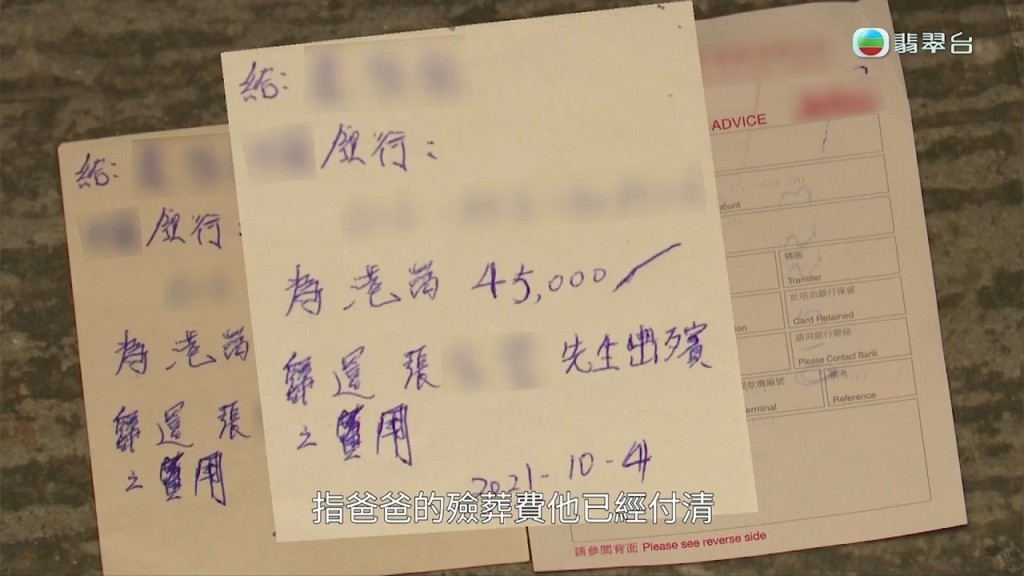 翡翠台
給:
銀行:
為港幣 45,000/
張 先生出殯
之費用
2021-10-4
給:
銀行:
為港幣
張
之費用
ADVICE
轉賬
Transfer
此咭由銀行保留
Card Retained
請與銀行聯絡
Please Contact Bank
Reference
請參閱背面 Please see reverse side
指爸爸的殮葬費他已經付清